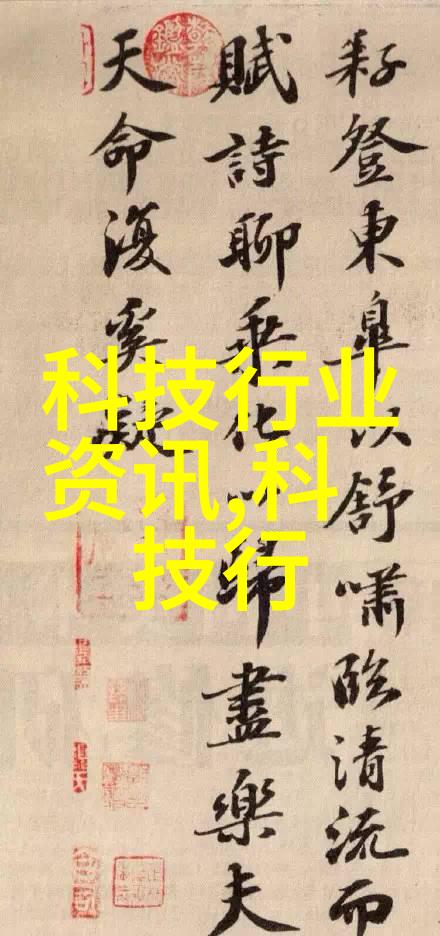 耔登東皋以舒嘯臨清流而
賦詩聊乘化以歸盡樂夫
天命復奚疑
科技行业
资讯,科
技行